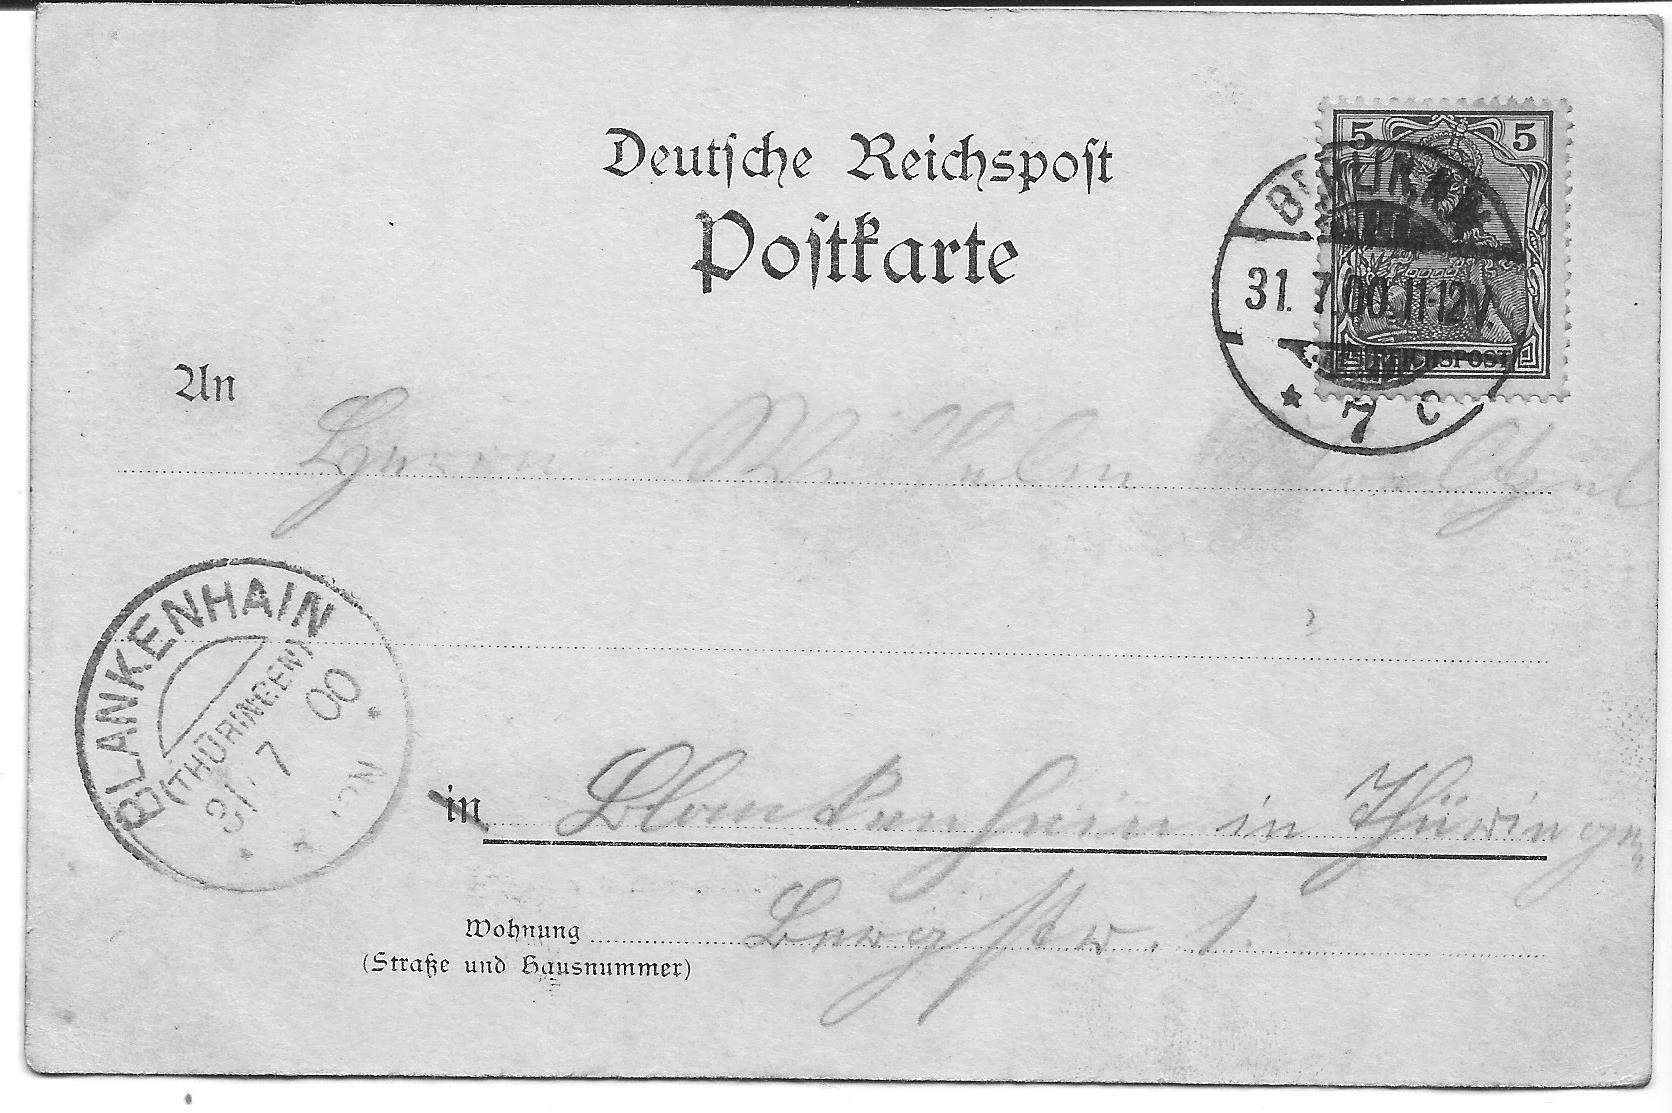 Deutsche Reichspost
Postkarte
5 5
REICHSPOST
31. 7. 00. 11-12 V.
* 7 c
An
Herrn Wilhelm
BLANKENHAIN
(THÜRINGEN)
31 7 00
N
in Blankenhain in Thüringen,
Wohnung Bergstr. 1.
(Straße und Hausnummer)